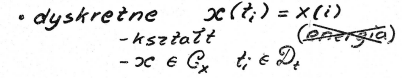 • dyskretne x(tᵢ) = x(i)
- kształt (energia)
- x ∈ Cₓ tᵢ ∈ Dₜ